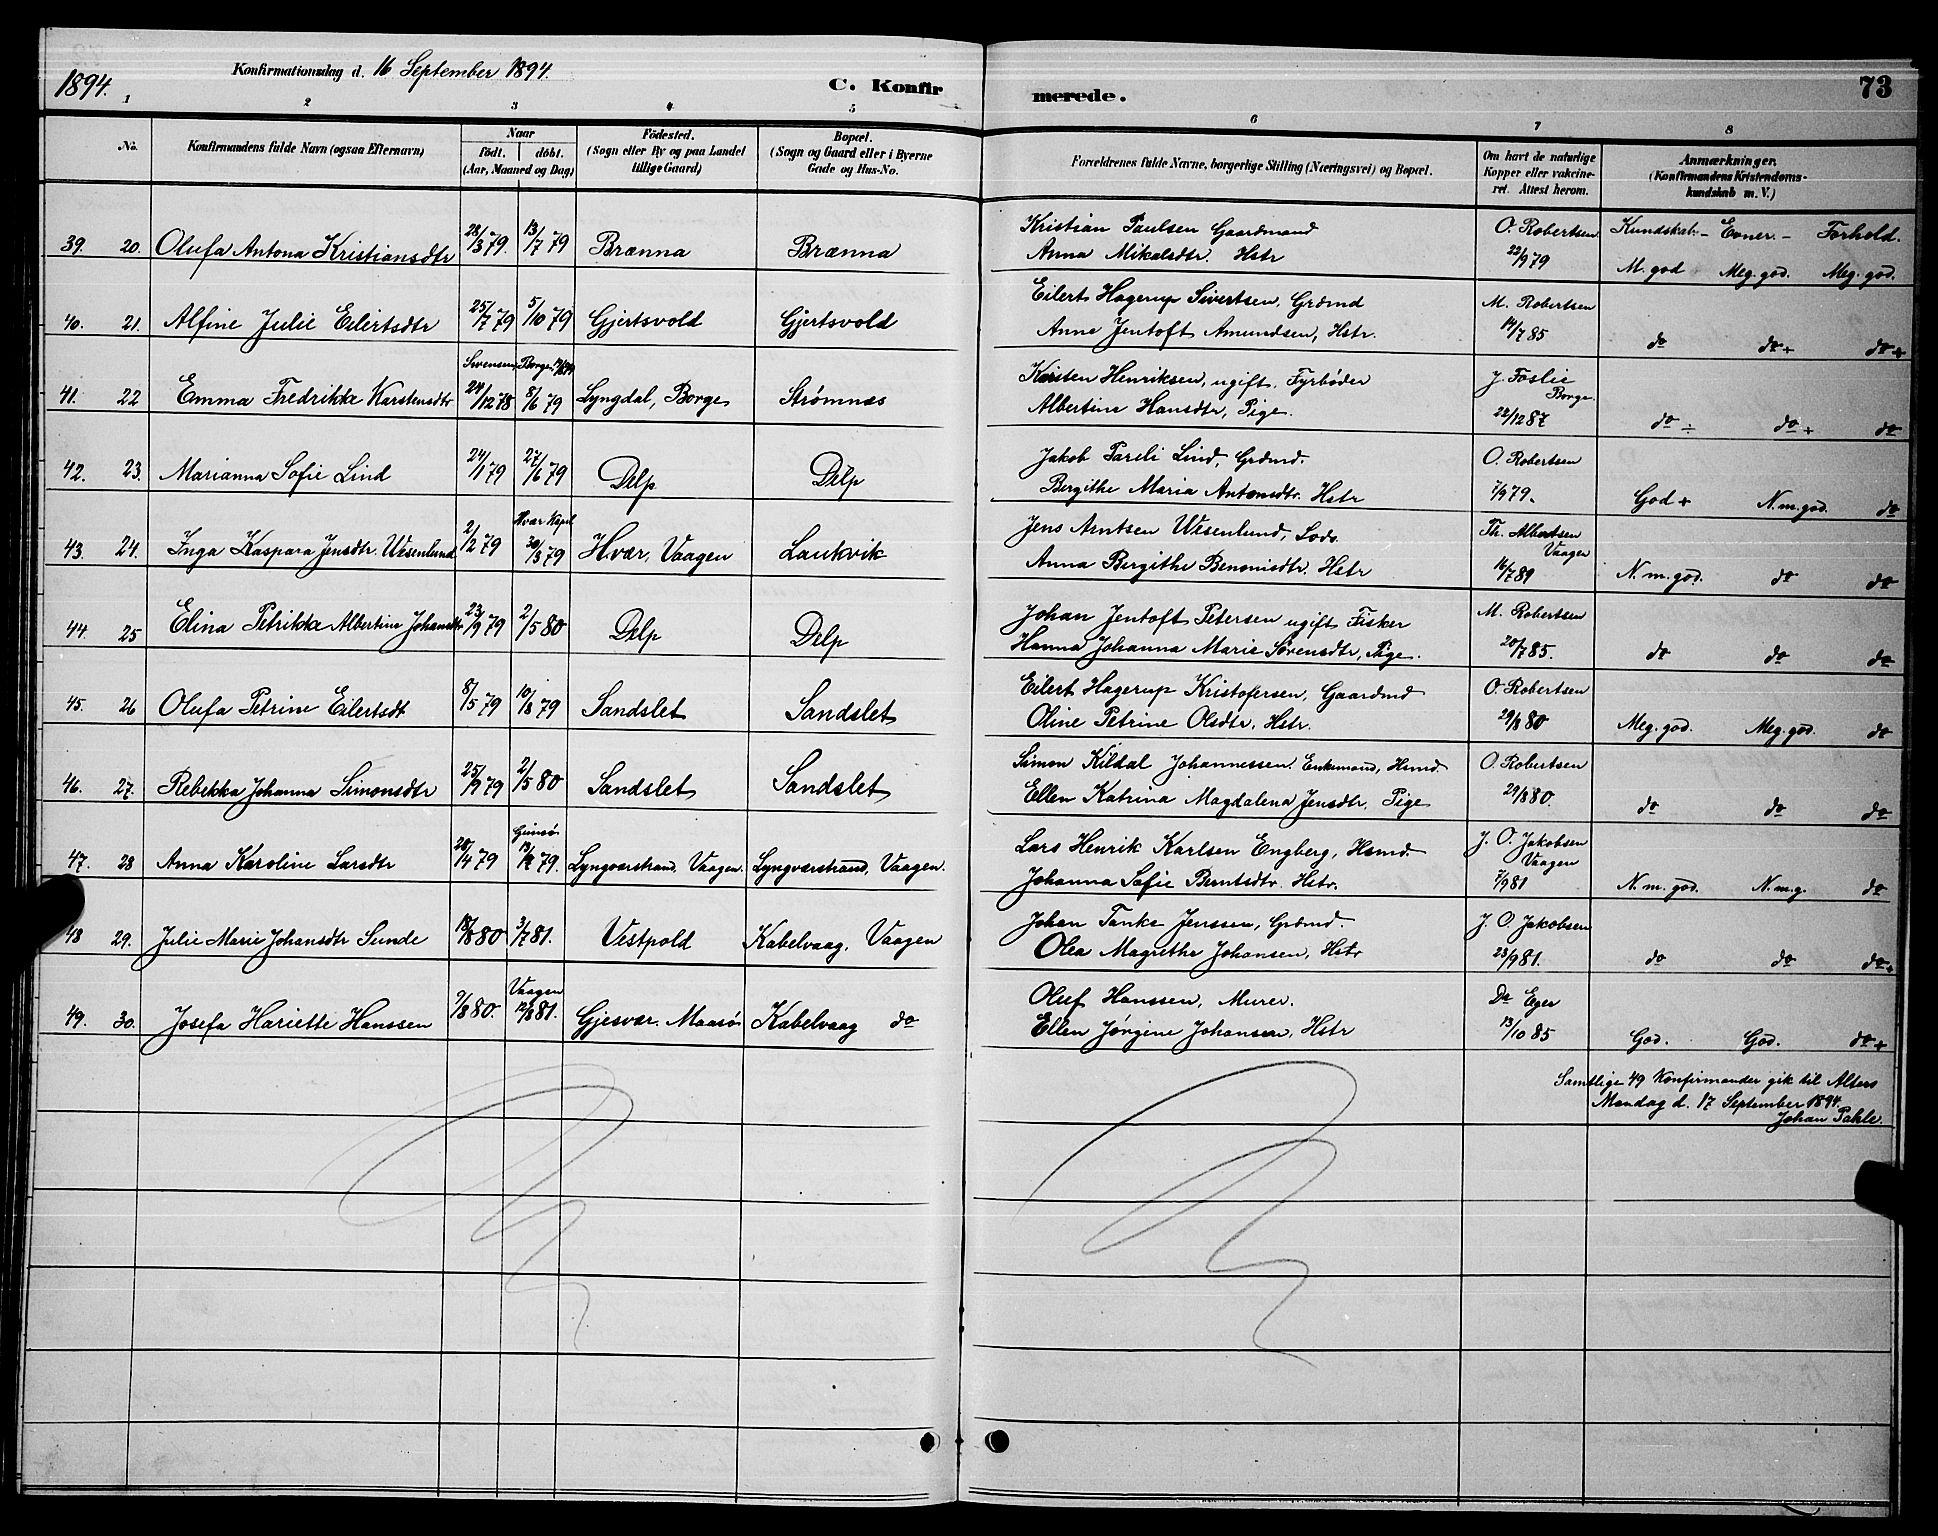 1894.
Konfirmationsdag d. 16 September 1894.
C. Konfirmerede.
73
1 2 3 4 5 6 7 8
No.
Konfirmandens fulde Navn (ogsaa Efternavn)
Naar
födt. döbt.
(Aar, Maaned og Dag)
Födested.
(Sogn eller By og paa Landet
tillige Gaard)
Bopæl.
(Sogn og Gaard eller i Byerne
Gade og Hus-No.
Forældrenes fulde Navne, borgerlige Stilling (Næringsvei) og Bopæl.
Om havt de naturlige
Kopper eller vakcine-
ret. Attest herom.
Anmærkninger.
(Konfirmandens Kristendoms-
kundskab m. V.)
39. 20. Olufa Antona Kristiansdtr 28/3 79. 13/7 79 Brænna Brænna
Kristian Paulsen Gaardmand O. Robertsen Kundskab.- Evner.- Forhold.
Anna Mikalsdtr. Hstr 22/9 79 M. god Meg. god. Meg. god.
40. 21. Alfine Julie Eilertsdtr 25/7 79 5/10 79 Gjertsvold Gjertsvold
Eilert Hagerup Sivertsen, Grdmd M. Robertsen
Anne Jentoft Amundsen, Hstr. 14/7 85 do do+ do+
Sørensen, Borge
41. 22 Emma Fredrikke Karstensdtr 24/12 78 8/6 79 Lyngdal, Borge Strømnæs
Karsten Henriksen, ugift, Fyrbøder J. Foslie
Borge.
Albertine Hansdtr, Pige. 22/12 87 do ÷ do+ do
42. 23. Marianna Sofie Lind 24/1 79 27/6 79 Delp Delp
Jakob Pareli Lind, Grdmd. O. Robertsen
Bergithe Maria Antonsdtr. Hstr 7/9 79. God + N. m. god. do
Hvær Kapel
43. 24. Inga Kaspara Jensdtr. Wesenlund 2/2 79 30/3 79 Hvær, Vaagen Laukvik
Jens Arntsen Wesenlund, Lods. Th. Albertsen
Vaagen
Anna Bergithe Benonisdtr. Hstr 16/7 89 N. m. god. do do
44. 25 Elina Petrikke Albertine Johansdtr 23/9 79 2/5 80 Delp Delp
Johan Jentoft Petersen ugift Fisker M. Robertsen
Hanna Johanna Marie Sørensdtr, Pige. 20/7 85. do do do
45. 26 Olufa Petrine Eilertsdt 8/5 79 10/8 79 Sandslet Sandslet
Eilert Hagerup Kristofersen, Gaardmd O. Robertsen
Oline Petrine Olsdtr, Hstr. 29/8 80 Meg. god. Meg. god. do
46. 27. Rebekka Johanna Simonsdtr 25/9 79 2/5 80 Sandslet Sandslet
Simon Kildal Johannessen. Enkemand, Hsmd. O. Robertsen
Ellen Katrina Magdalena Jensdtr, Pige 29/8 80. do do do
Gimsø
47. 28 Anna Karoline Larsdtr 20/4 79 79. Lyngværstrand, Vaagen. Lyngværstrand, Vaagen.
Lars Henrik Karlsen Engberg, Hsmd. J. O. Jakobsen
Vaagen
Johanna Sofie Berntsdtr. Hstr. 7/9 81 N. m. god. N. m. g. do
48 29. Julie Marie Johansdtr Sunde 18/8 80 3/7 81. Vestpold Kabelvaag, Vaagen
Johan Tanke Jenssen, Grdmd. J. O. Jakobsen
Olea Magrethe Johansen, Hstr 23/9 81. do do do+
Vaagen
49. 30. Josefa Hariette Hanssen 9/8 80. 12/8 81. Gjesvær. Maasø Kabelvaag do
Oluf Hanssen, Murer. Dr Eger
Ellen Jørgine Johansen, Hstr 13/10 85 God. God. do+
Samtlige 49 Konfirmander gik til Alters
Mandag d. 17 September 1894.
Johan Pahle.